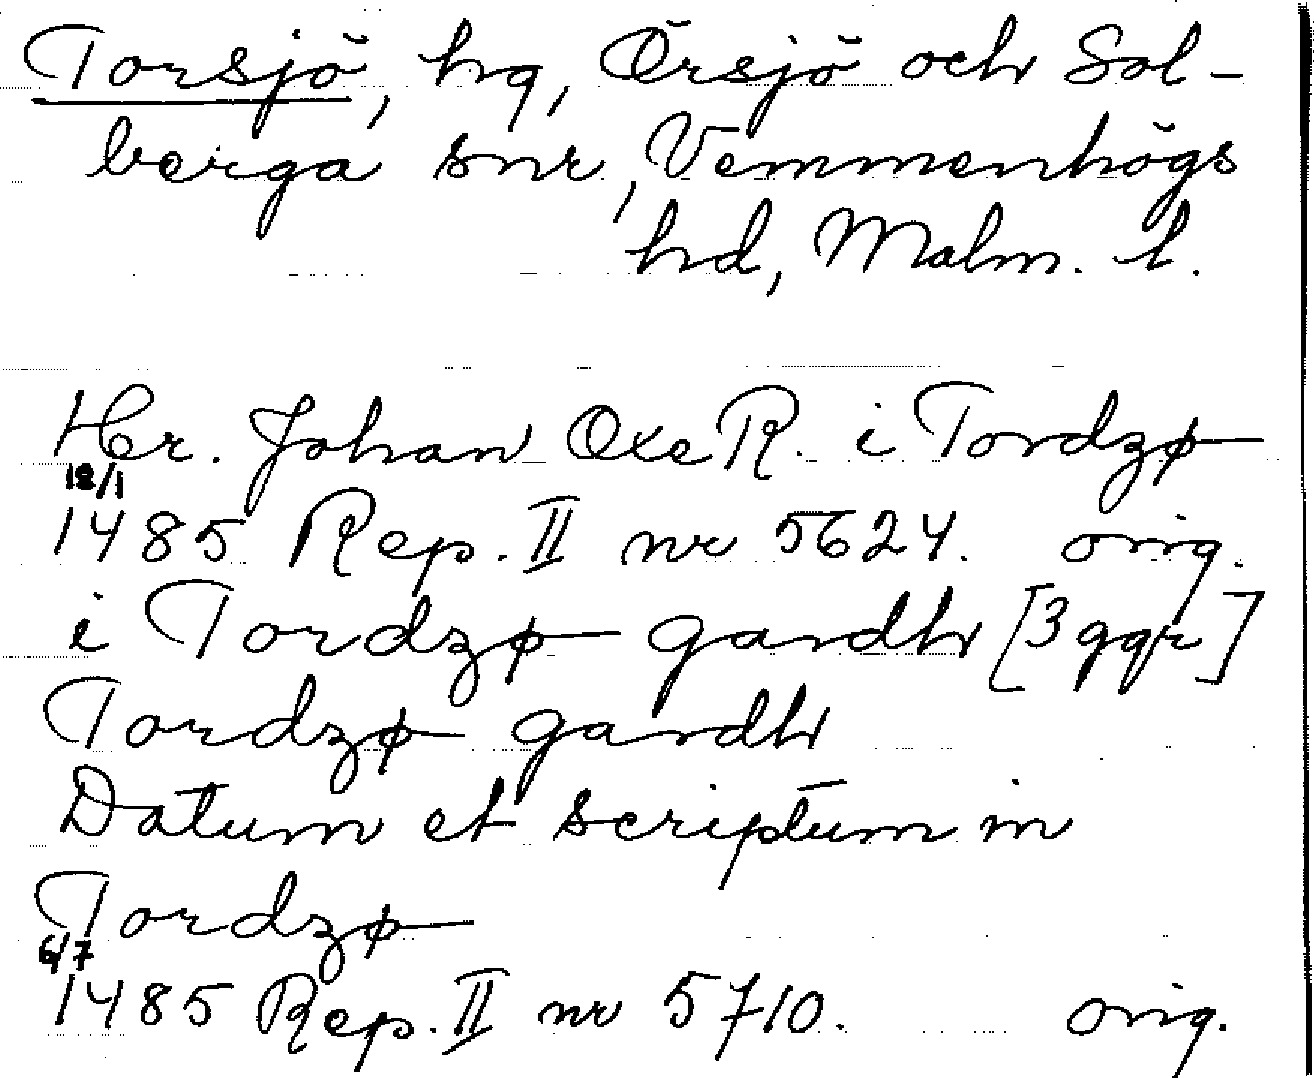 Torsjö, hg, Örsjö och Sol-
berga snr, Vemmenhögs
hd, Malm. l.
Hr. Johan Oxe R. i Tordzø
12/1
1485 Rep. II nr 5624. orig.
i Tordzø gardh [3 ggr]
Tordzø gardh
Datum et scriptum in
Tordzø
6/7
1485 Rep. II nr 5710. orig.